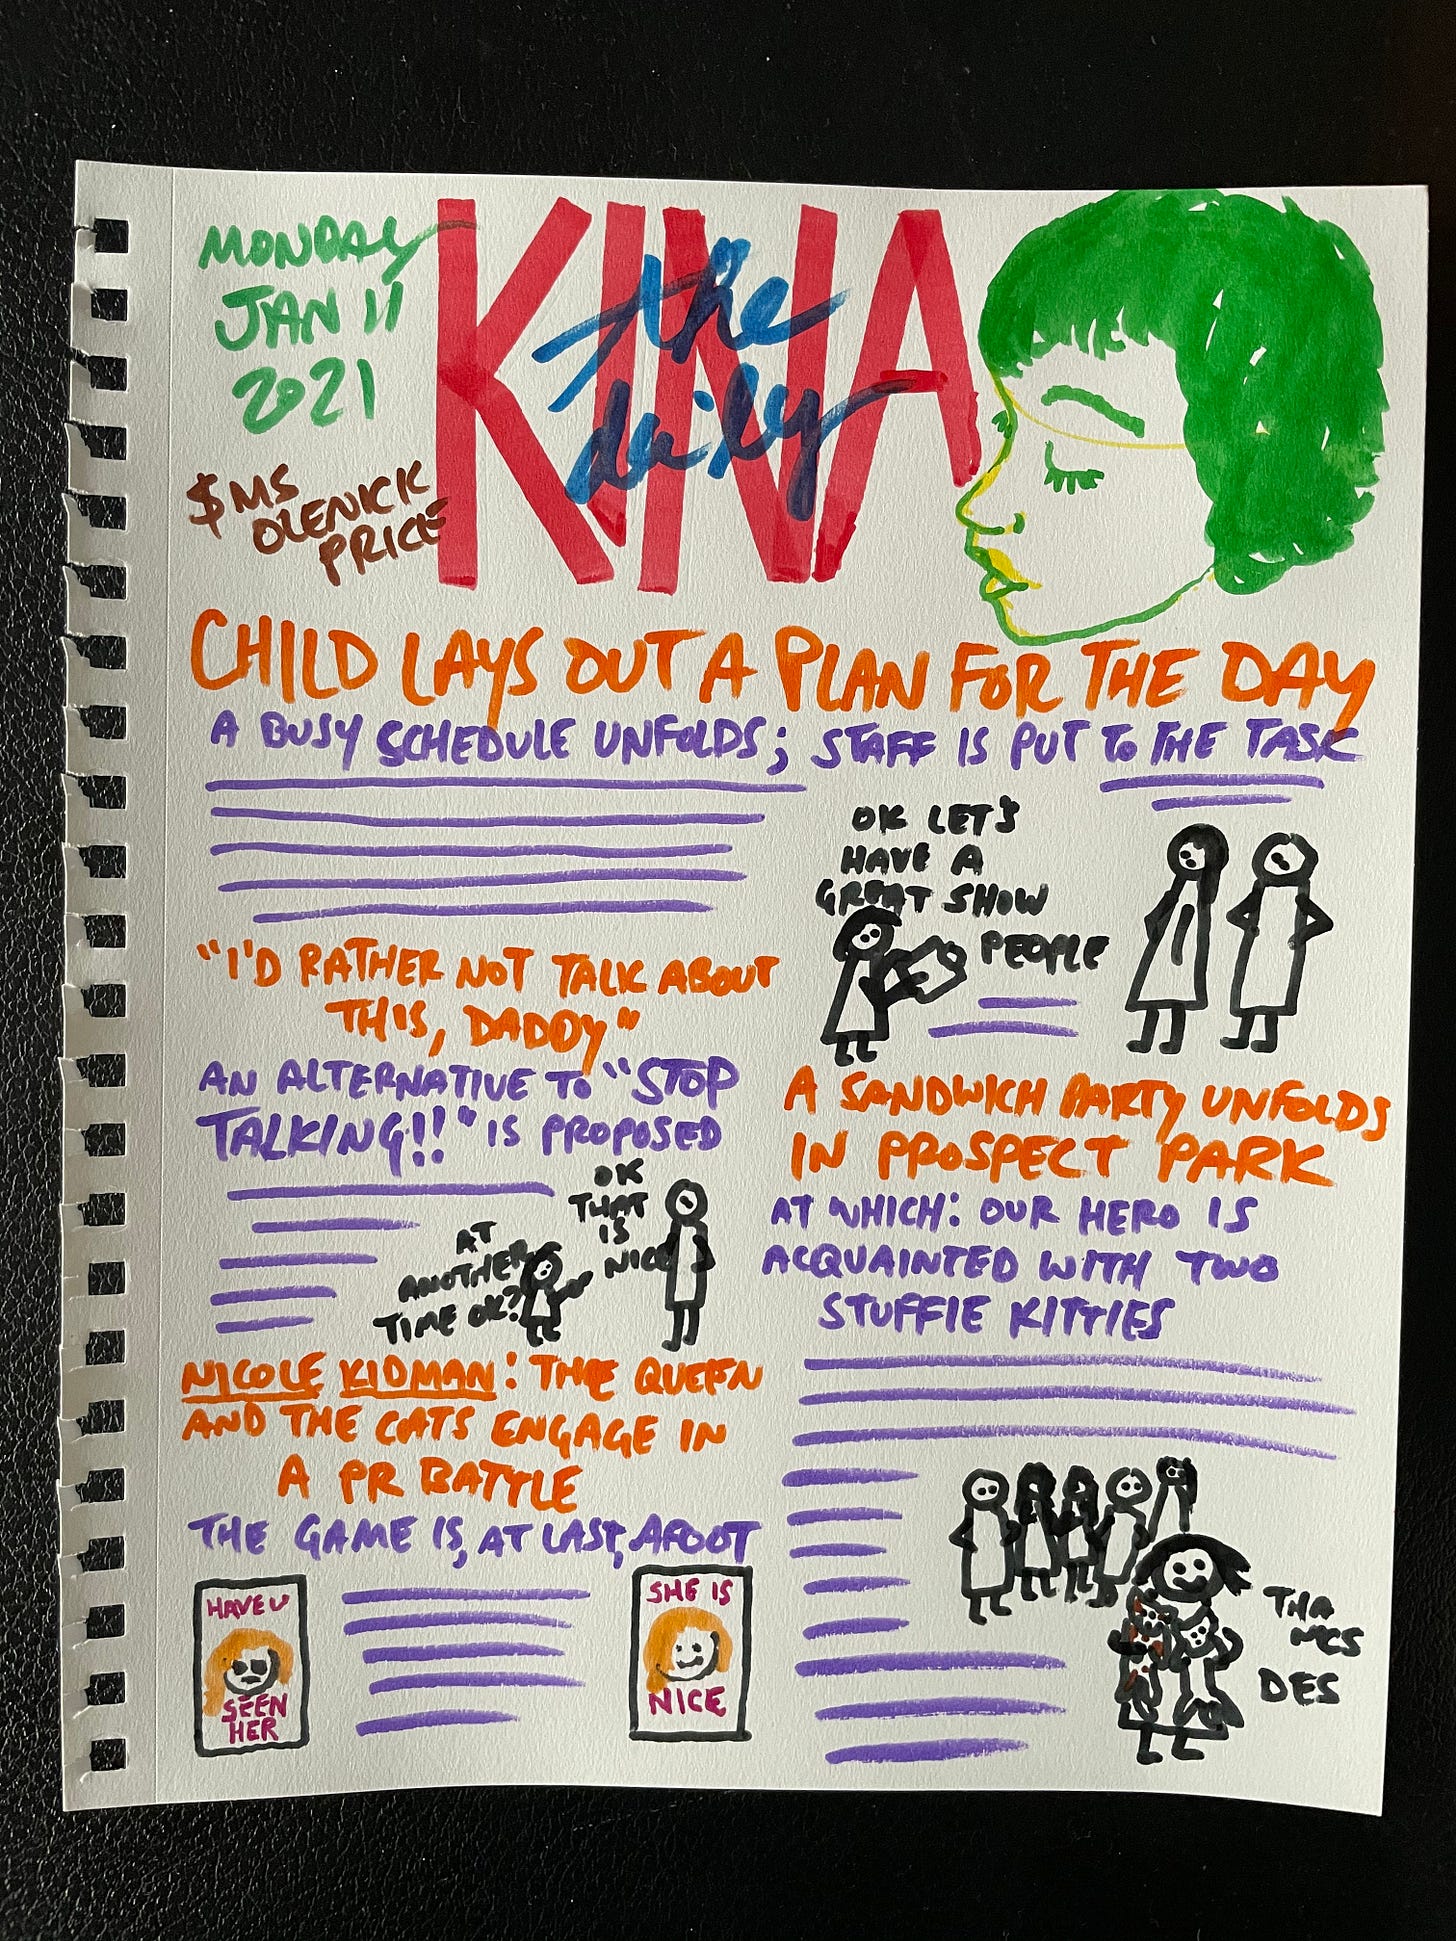 MONDAY
JAN 11
2021
$ MS
OLENICK
PRICE
KINA
the
daily
CHILD LAYS OUT A PLAN FOR THE DAY
A BUSY SCHEDULE UNFOLDS; STAFF IS PUT TO THE TASK
OK LET'S
HAVE A
GREAT SHOW
PEOPLE
"I'D RATHER NOT TALK ABOUT
THIS, DADDY"
AN ALTERNATIVE TO "STOP
TALKING!!" IS PROPOSED
AT
ANOTHER
TIME OK?
OK
THAT
IS
NICE
NICOLE KIDMAN: THE QUEEN
AND THE CATS ENGAGE IN
A PR BATTLE
THE GAME IS, AT LAST, AFOOT
HAVE U
SEEN
HER
SHE IS
NICE
A SANDWICH PARTY UNFOLDS
IN PROSPECT PARK
AT WHICH: OUR HERO IS
ACQUAINTED WITH TWO
STUFFIE KITTIES
THA
NCS
DES